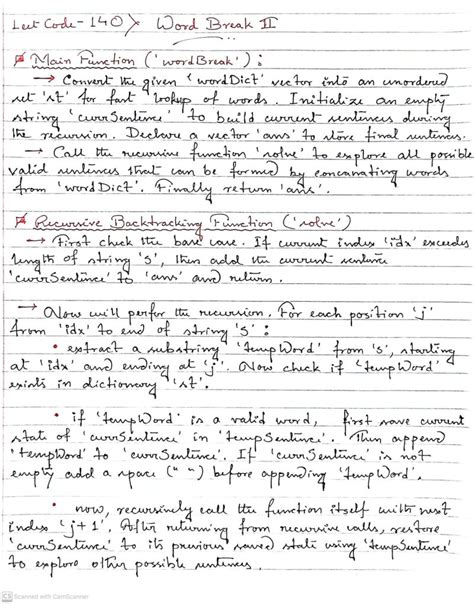 Leet Code - 140> Word Break II
Main Function ('wordBreak') :
→ Convert the given 'wordDict' vector into an unordered
set 'st' for fast lookup of words. Initialize an empty
string 'currSentence' to build current sentences during
the recursion. Declare a vector 'ans' to store final sentences.
→ Call the recursive function 'solve' to explore all possible
valid sentences that can be formed by concanating words
from 'wordDict'. Finally return 'ans'.
Recursive Backtracking Function ('solve')
→ First check the base case. If current index 'idx' exceeds
length of string 's', then add the current sentence
'currSentence' to 'ans' and return.
→ Now will perfor the recursion. For each position 'j'
from 'idx' to end of string 's' :
• extract a substring 'tempWord' from 's', starting
at 'idx' and ending at 'j'. Now check if 'tempWord'
exists in dictionary 'st'.
• if 'tempWord' is a valid word, first save current
state of 'currSentence' in 'tempSentence'. Then append
'tempWord' to 'currSentence'. If 'currSentence' is not
empty add a space (" ") before appending 'tempWord'.
• now, recursively call the function itself with next
index 'j+1'. After returning from recursive calls, restore
'currSentence' to its previous saved state using 'tempSentence'
to explore other possible sentences.
CS Scanned with CamScanner